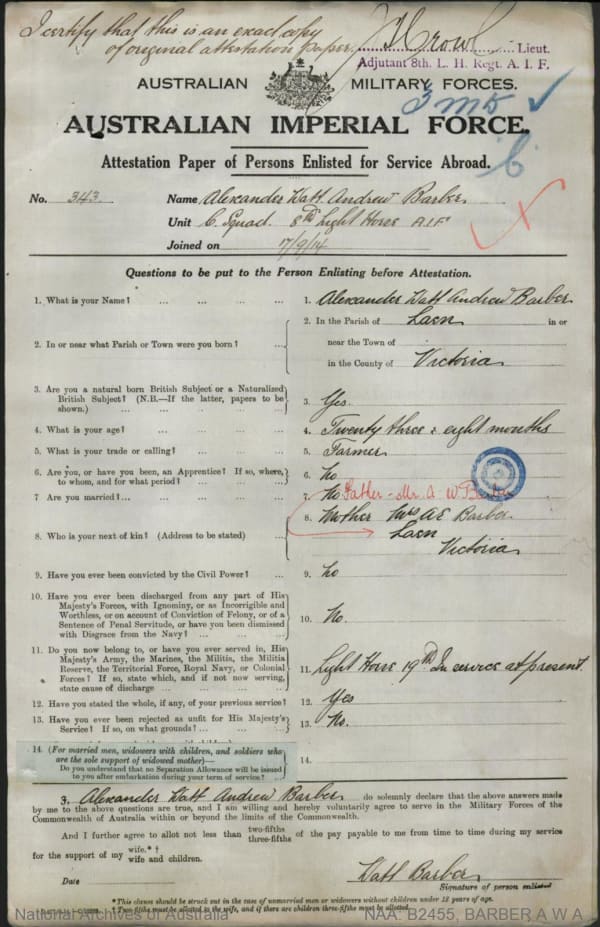 I certify that this is an exact copy
of original attestation paper. Lieut.
Adjutant 8th. L. H. Regt. A. I. F.
AUSTRALIAN MILITARY FORCES.
AUSTRALIAN IMPERIAL FORCE.
Attestation Paper of Persons Enlisted for Service Abroad.
No. 343 Name Alexander Watt Andrew Barber
Unit C. Squad. 8th Light Horse A.I.F
Joined on 17/9/14
Questions to be put to the Person Enlisting before Attestation.
1. What is your Name? 1. Alexander Watt Andrew Barber
2. In or near what Parish or Town were you born? 2. In the Parish of Laen in or
near the Town of
in the County of Victoria
3. Are you a natural born British Subject or a Naturalized
British Subject? (N.B.—If the latter, papers to be
shown.) 3. Yes.
4. What is your age? 4. Twenty three & eight months
5. What is your trade or calling? 5. Farmer
6. Are you, or have you been, an Apprentice? If so, where,
to whom, and for what period? 6. No
7. Are you married? 7. No. Father - Mr. A. W.
8. Who is your next of kin? (Address to be stated) 8. Mother Mrs A E Barber
Laen
Victoria
9. Have you ever been convicted by the Civil Power? 9. No
10. Have you ever been discharged from any part of His
Majesty's Forces, with Ignominy, or as Incorrigible and
Worthless, or on account of Conviction of Felony, or of a
Sentence of Penal Servitude, or have you been dismissed
with Disgrace from the Navy? 10. No.
11. Do you now belong to, or have you ever served in, His
Majesty's Army, the Marines, the Militia, the Militia
Reserve, the Territorial Force, Royal Navy, or Colonial
Forces? If so, state which, and if not now serving,
state cause of discharge 11. Light Horse 19th In service at present.
12. Have you stated the whole, if any, of your previous service? 12. Yes
13. Have you ever been rejected as unfit for His Majesty's
Service? If so, on what grounds? 13. No.
14. (For married men, widowers with children, and soldiers who
are the sole support of widowed mother)—
Do you understand that no Separation Allowance will be issued
to you after embarkation during your term of service? 14.
3. Alexander Watt Andrew Barber do solemnly declare that the above answers made
by me to the above questions are true, and I am willing and hereby voluntarily agree to serve in the Military Forces of the
Commonwealth of Australia within or beyond the limits of the Commonwealth.
And I further agree to allot not less than two-fifths three-fifths of the pay payable to me from time to time during my service
for the support of my wife.*† wife and children.
Watt Barber
Date Signature of person enlisted
*This clause should be struck out in the case of unmarried men or widowers without children under 18 years of age.
† Two-fifths must be allotted to the wife, and if there are children three-fifths must be allotted.
National Archives of Australia NAA: B2455, BARBER A W A